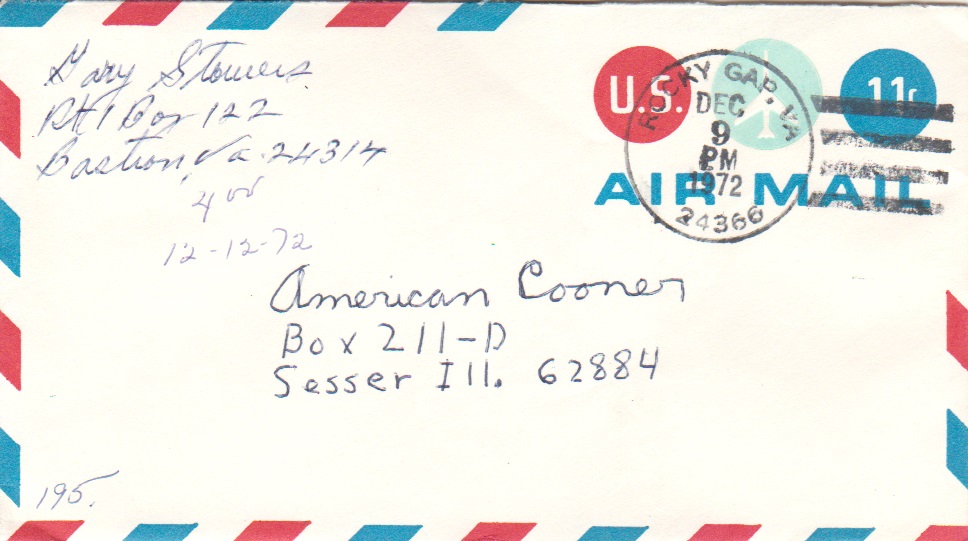 Gary Stowers
Rt 1 Box 122
Bastion, Va. 24314
4 00
12-12-72
U.S.
11c
AIR MAIL
ROCKY GAP, VA
DEC
9
PM
1972
24366
American Cooner
Box 211-D
Sesser Ill. 62884
195.